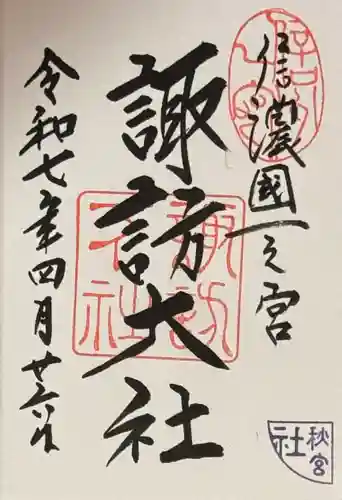 信濃國一之宮
諏訪大社
令和七年四月廿六日
諏訪大社
秋宮
社